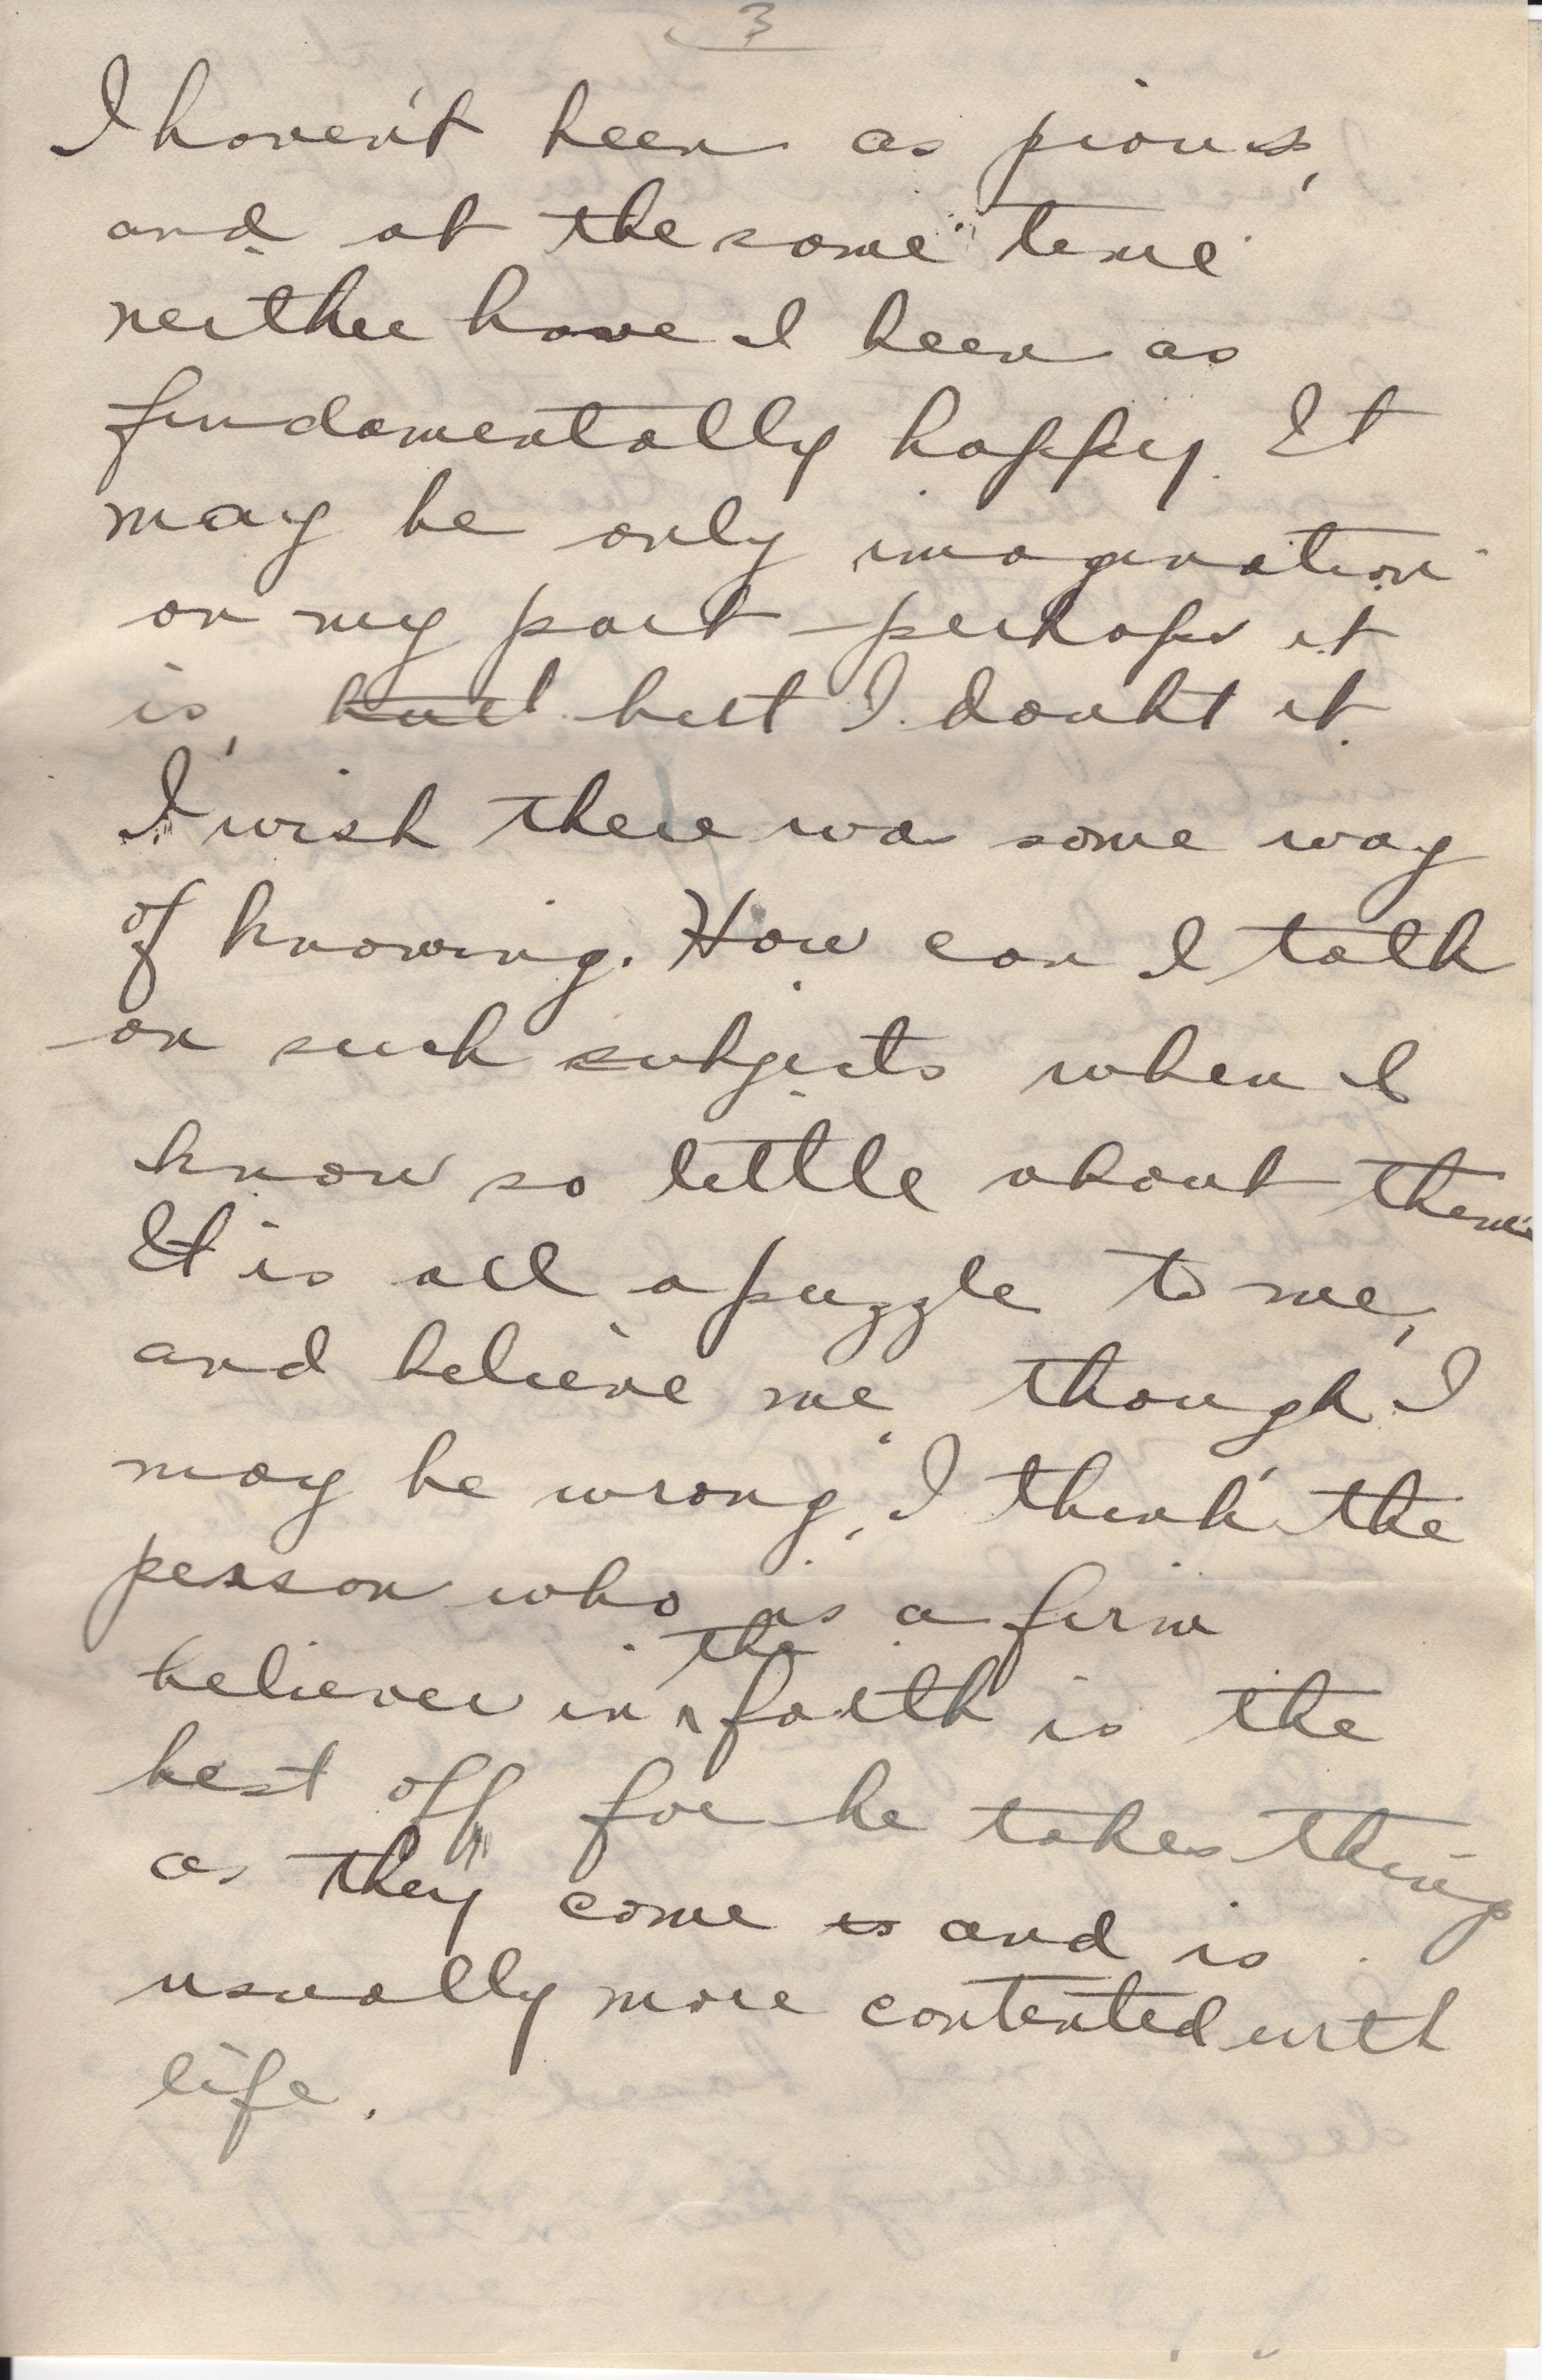 3
I haven't been as pious,
and at the same time
neither have I been as
fundamentally happy. It
may be only imagination
on my part - perhaps it
is, but but I doubt it.
I wish there was some way
of knowing. How can I talk
on such subjects when I
know so little about them.
It is all a puzzle to me,
and believe me, though I
may be wrong, I think the
person who is a firm
believer in the faith is the
best off for he takes things
as they come is and is
usually more contented with
life.